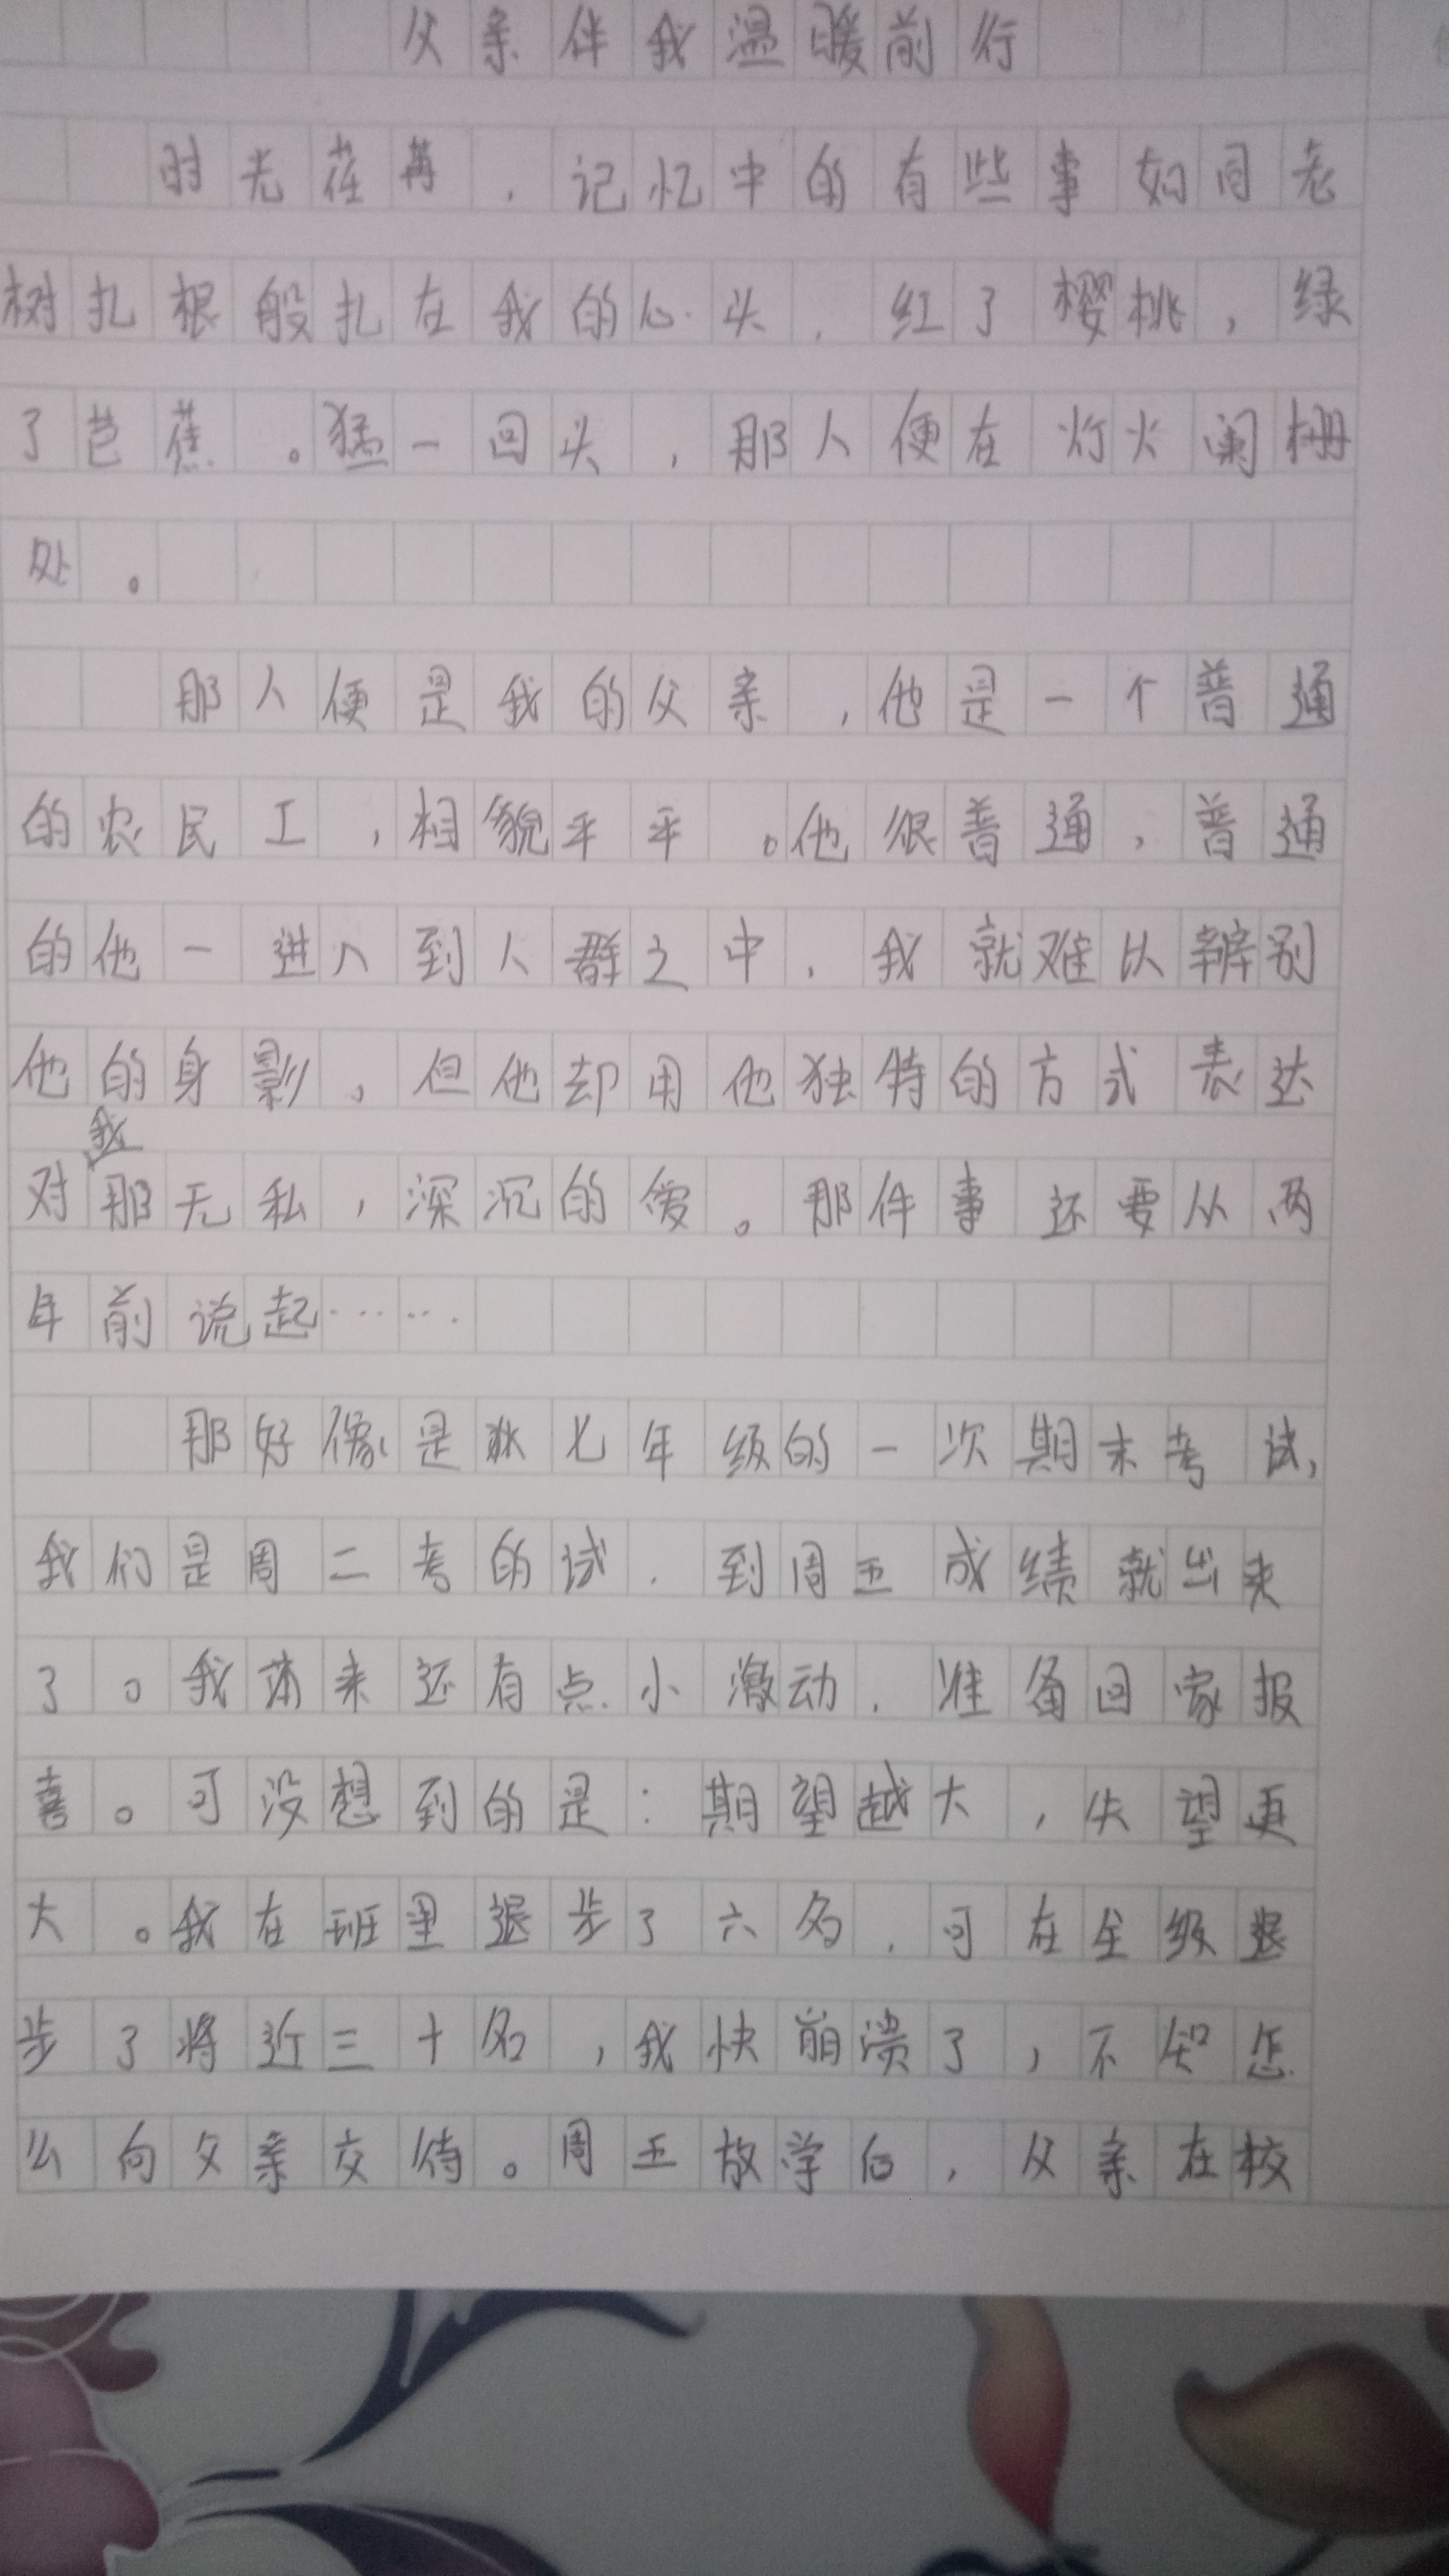 父亲伴我温暖前行
时光荏苒，记忆中的有些事如同老
树扎根般扎在我的心头，红了樱桃，绿
了芭蕉。猛一回头，那人便在灯火阑栅
处。
那人便是我的父亲，他是一个普通
的农民工，相貌平平。他很普通，普通
的他一进入到人群之中，我就难以辨别
他的身影。但他却用他独特的方式表达
对我那无私，深沉的爱。那件事还要从两
年前说起……
那好像是我七年级的一次期末考试，
我们是周二考的试，到周五成绩就出来
了。我本来还有点小激动，准备回家报
喜。可没想到的是：期望越大，失望更
大。我在班里退步了六名，可在全级退
步了将近三十名，我快崩溃了，不知怎
么向父亲交待。周五放学后，父亲在校